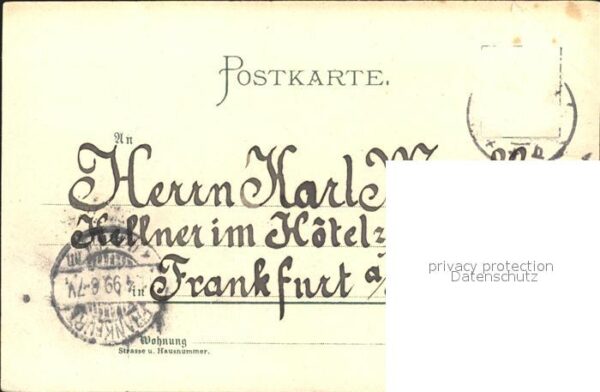 POSTKARTE.
An
Herrn Karl
Kellner im Hôtel
in Frankfurt a/
Wohnung
Strasse u. Hausnummer.
privacy protection
Datenschutz